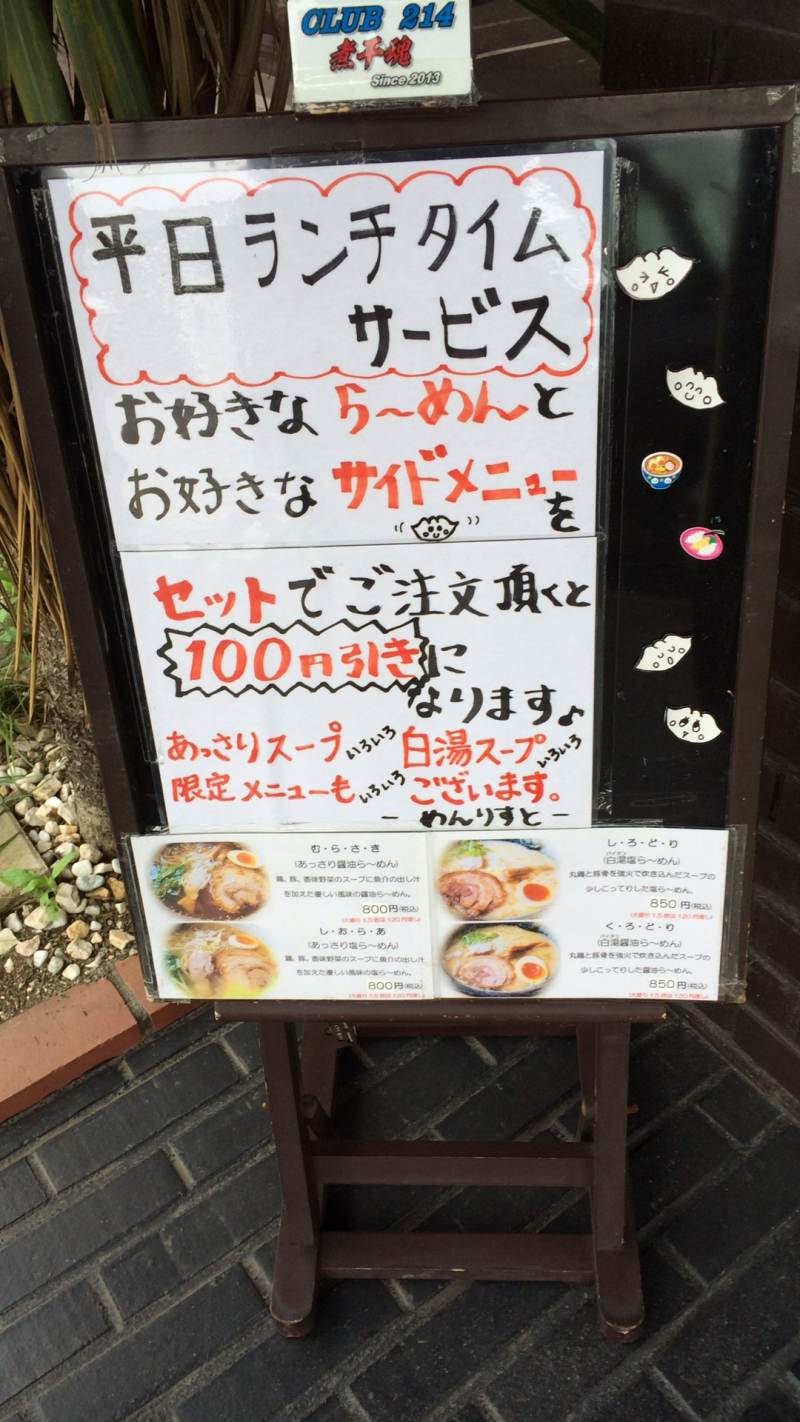 CLUB 214
煮干魂
Since 2013
平日ランチタイム
サービス
お好きならーめんと
お好きなサイドメニューを
セットでご注文頂くと
100円引きに
なります♪
あっさりスープいろいろ 白湯スープいろいろ
限定メニューもいろいろ ございます。
ー めんりすと ー
む・ら・さ・き
(あっさり醤油ら〜めん)
鶏、豚、香味野菜のスープに魚介の出し汁
を加えた優しい風味の醤油ら〜めん。
800円(税込)
(大盛り1.5倍は120円増し)
し・お・ら・あ
(あっさり塩ら〜めん)
鶏、豚、香味野菜のスープに魚介の出し汁
を加えた優しい風味の塩ら〜めん。
800円(税込)
(大盛り1.5倍は120円増し)
し・ろ・ど・り
(白湯塩ら〜めん)
丸鶏と豚骨を強火で炊き込んだスープの
少しこってりした塩ら〜めん。
850円(税込)
(大盛り1.5倍は120円増し)
く・ろ・ど・り
(白湯醤油ら〜めん)
丸鶏と豚骨を強火で炊き込んだスープの
少しこってりした醤油ら〜めん。
850円(税込)
(大盛り1.5倍は120円増し)